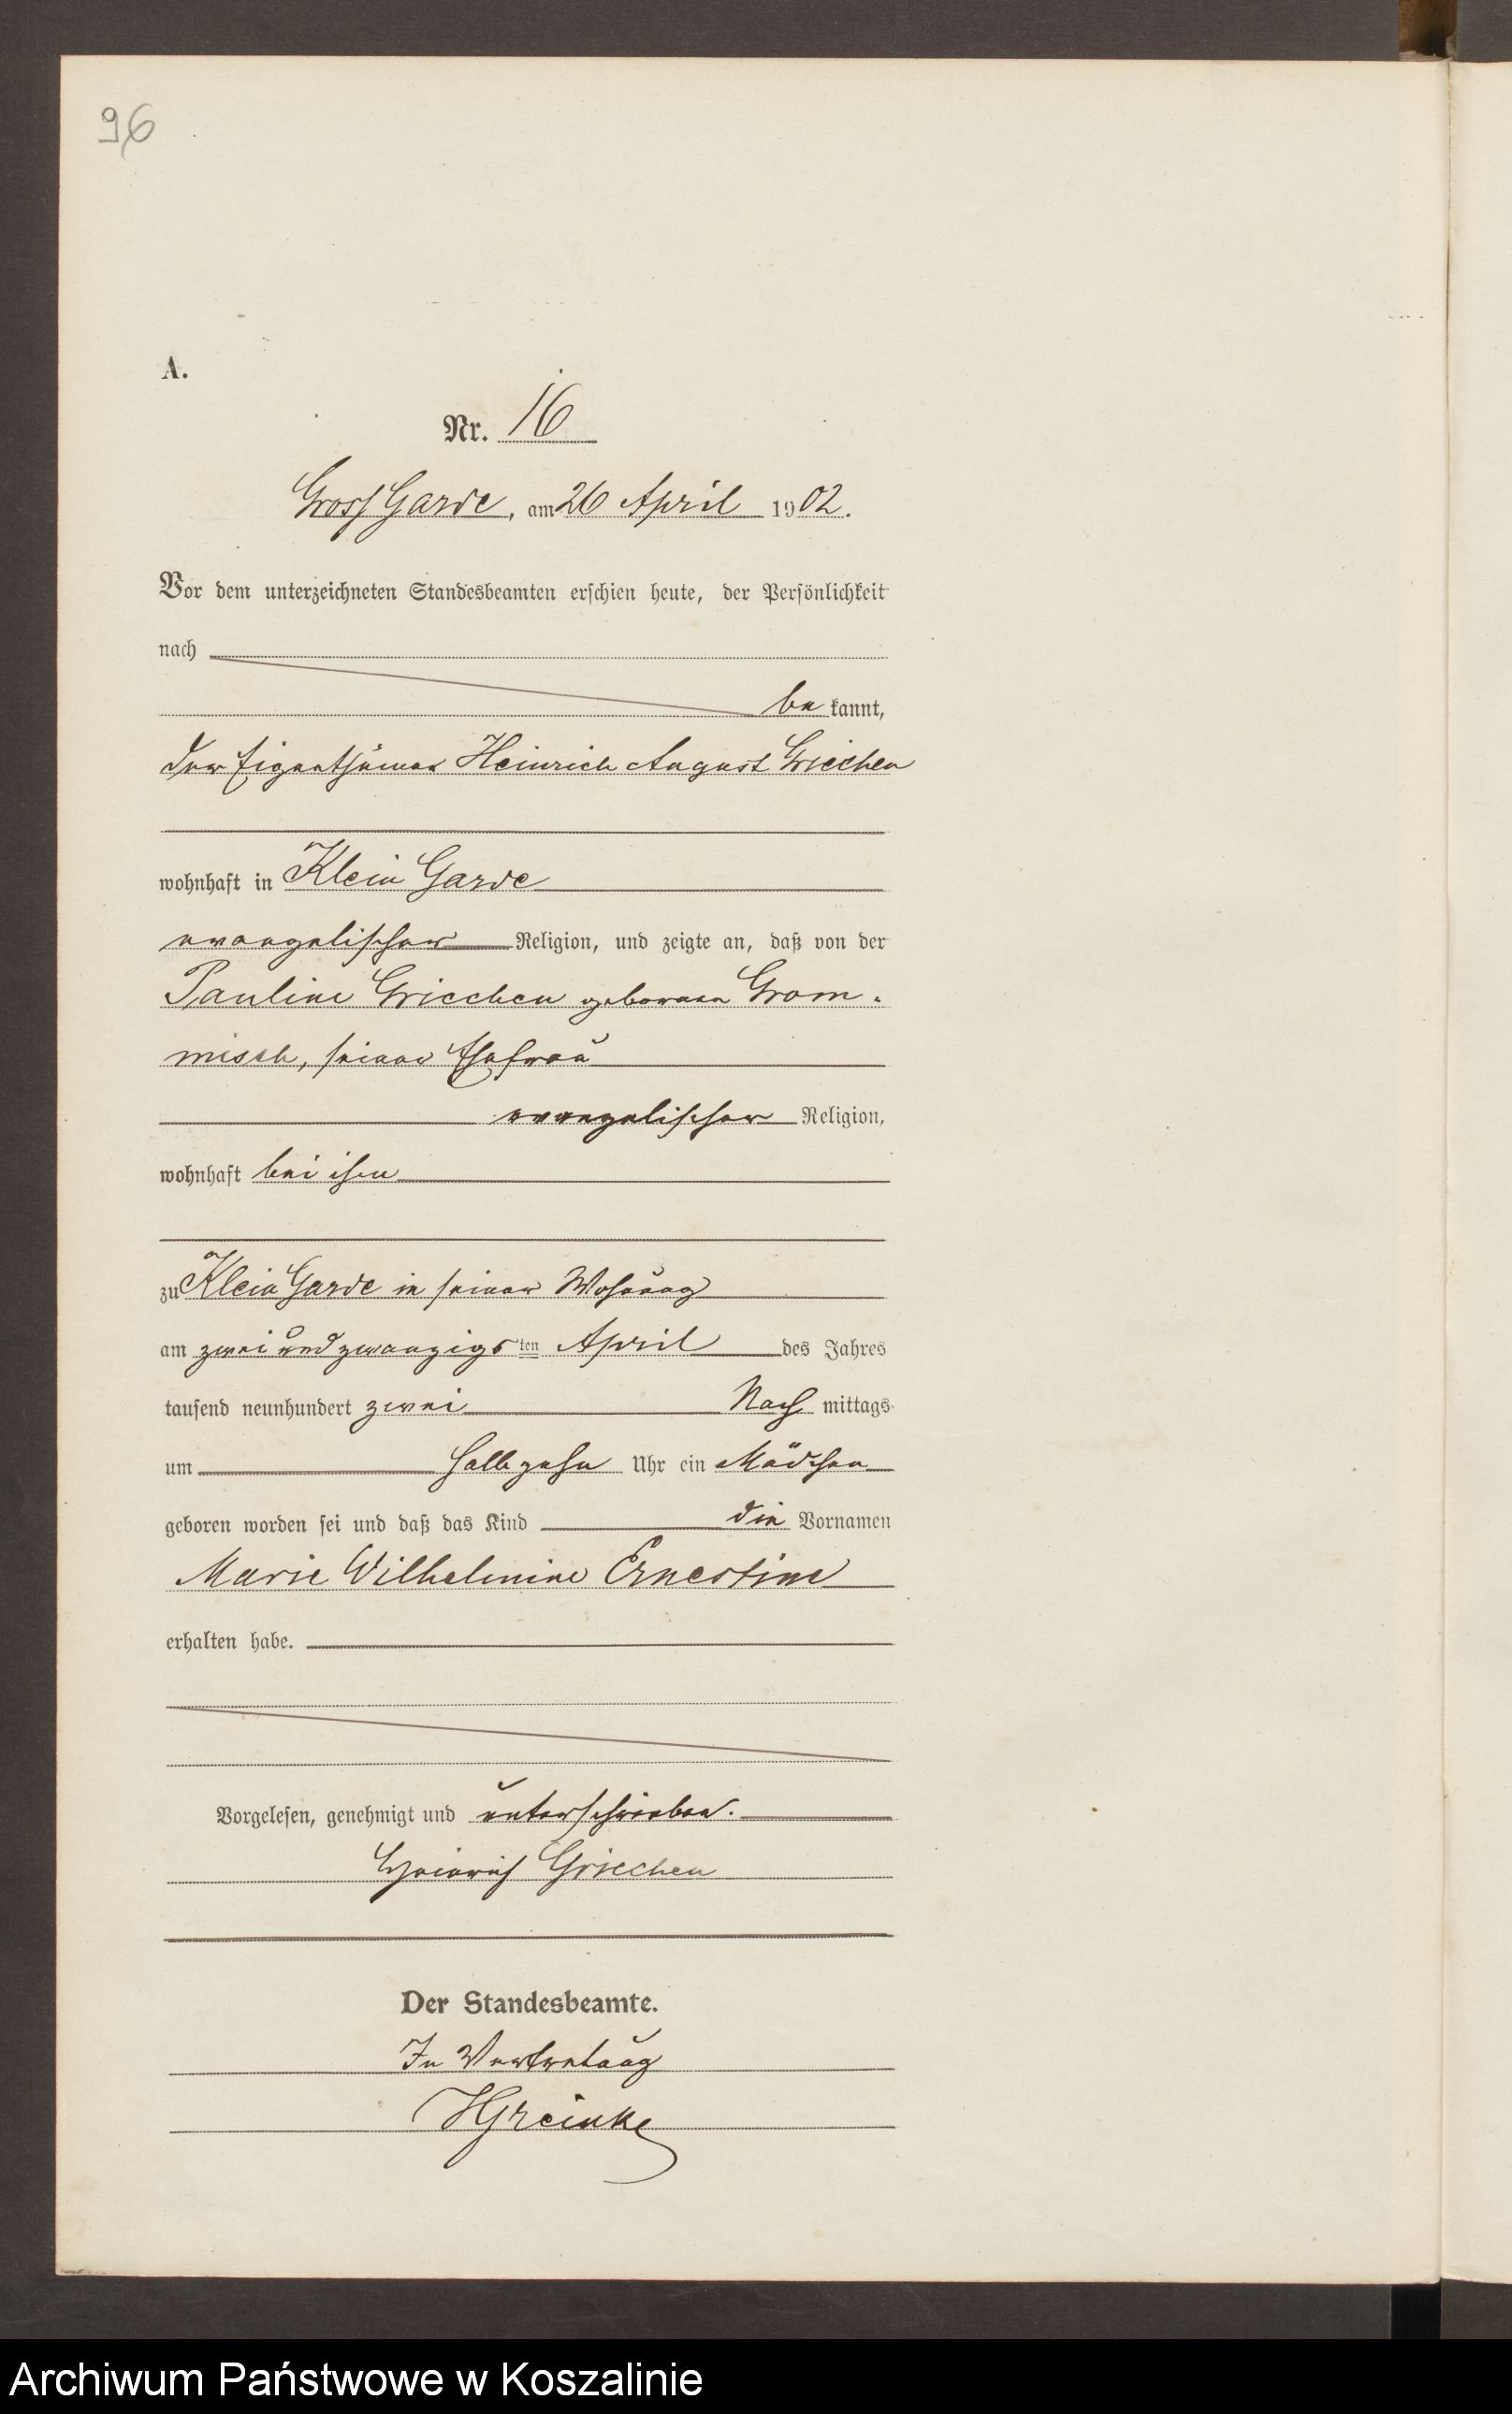 96
A.
Nr. 16
Gross Garde, am 26 April 1902.
Vor dem unterzeichneten Standesbeamten erschien heute, der Persönlichkeit
nach
be kannt,
der Eigenthümer Heinrich August Griechen
wohnhaft in Klein Garde
evangelischer Religion, und zeigte an, daß von der
Pauline Griechen geborenen Grom-
misch, seiner Ehefrau
evangelischer Religion,
wohnhaft bei ihm
zu Klein Garde in seiner Wohnung
am zwei und zwanzigsten April des Jahres
tausend neunhundert zwei Nach mittags
um halb zehn Uhr ein Mädchen
geboren worden sei und daß das Kind die Vornamen
Marie Wilhelmine Ernestine
erhalten habe.
Vorgelesen, genehmigt und unterschrieben.
Heinrich Griechen
Der Standesbeamte.
In Vertretung
HGreinke
Archiwum Państwowe w Koszalinie